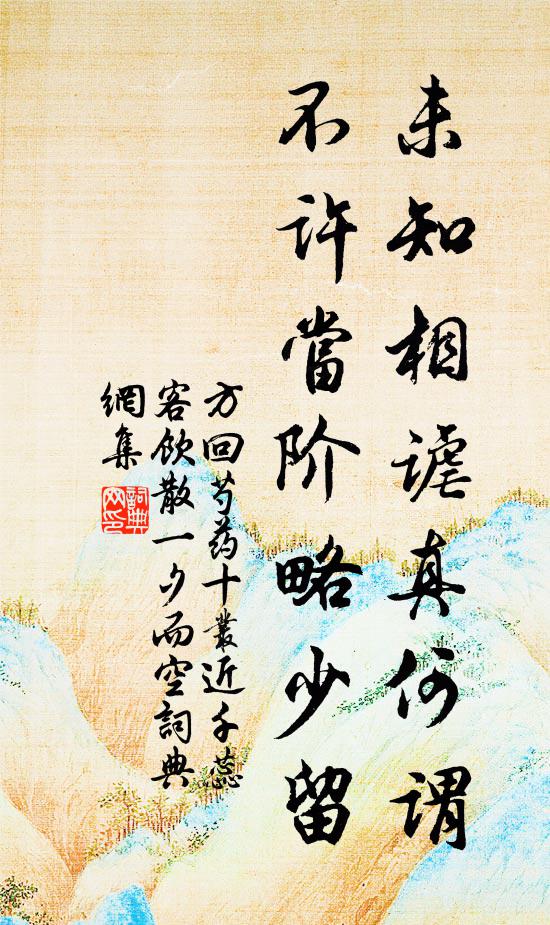 未知相謔真何謂
不许當阶略少留
方回芍药十叢近千蕊
客飲散一夕而空詞典
網集
詞典
网印